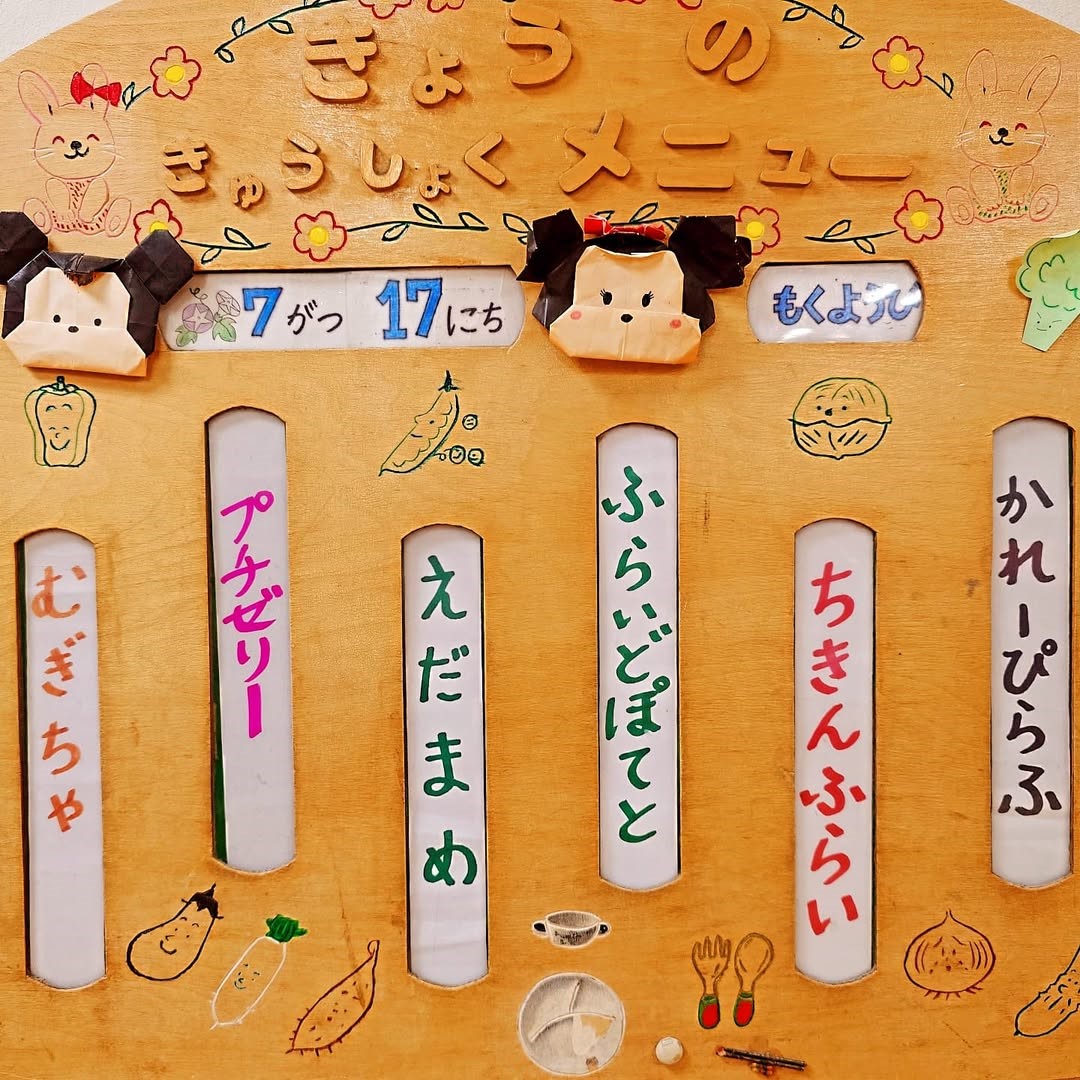 きょうの
きゅうしょくメニュー
7がつ 17にち
もくようび
かれーぴらふ
ちきんふらい
ふらいどぽてと
えだまめ
プチゼリー
むぎちゃ